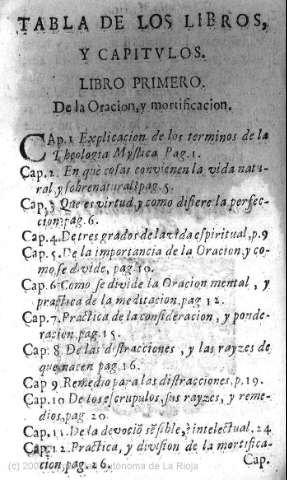 TABLA DE LOS LIBROS,
Y CAPITVLOS.
LIBRO PRIMERO.
De la Oracion, y mortificacion.
CAp. 1 Explicacion de los terminos de la
Theologia Mystica Pag. 1.
Cap. 2. En que cosas convienen la vida natu-
ral, y sobrenatural. pag. 5.
Cap. 3 Que es virtud, y como difiere la perfec-
cion: pag. 6.
Cap. 4. De tres grados de la vida espiritual, p. 9
Cap. 5. De la importancia de la Oracion, y co-
mo se divide, pag. 10.
Cap. 6. Como se divide la Oracion mental, y
practica de la meditacion, pag 12.
Cap. 7. Practica de la consideracion, y ponde-
racion, pag. 15.
Cap. 8. De las distracciones, y las rayzes de
que nacen pag. 16.
Cap 9. Remedio para las distracciones, p. 19.
Cap. 10 De los escrupulos, sus rayzes, y reme-
dios, pag 20.
Cap. 11. De la devoció sẽsible, è intelectual, 24
Cap. 12. Practica, y division de la mortifica-
cion, pag. 26.
Cap.
(c) Autónoma de La Rioja